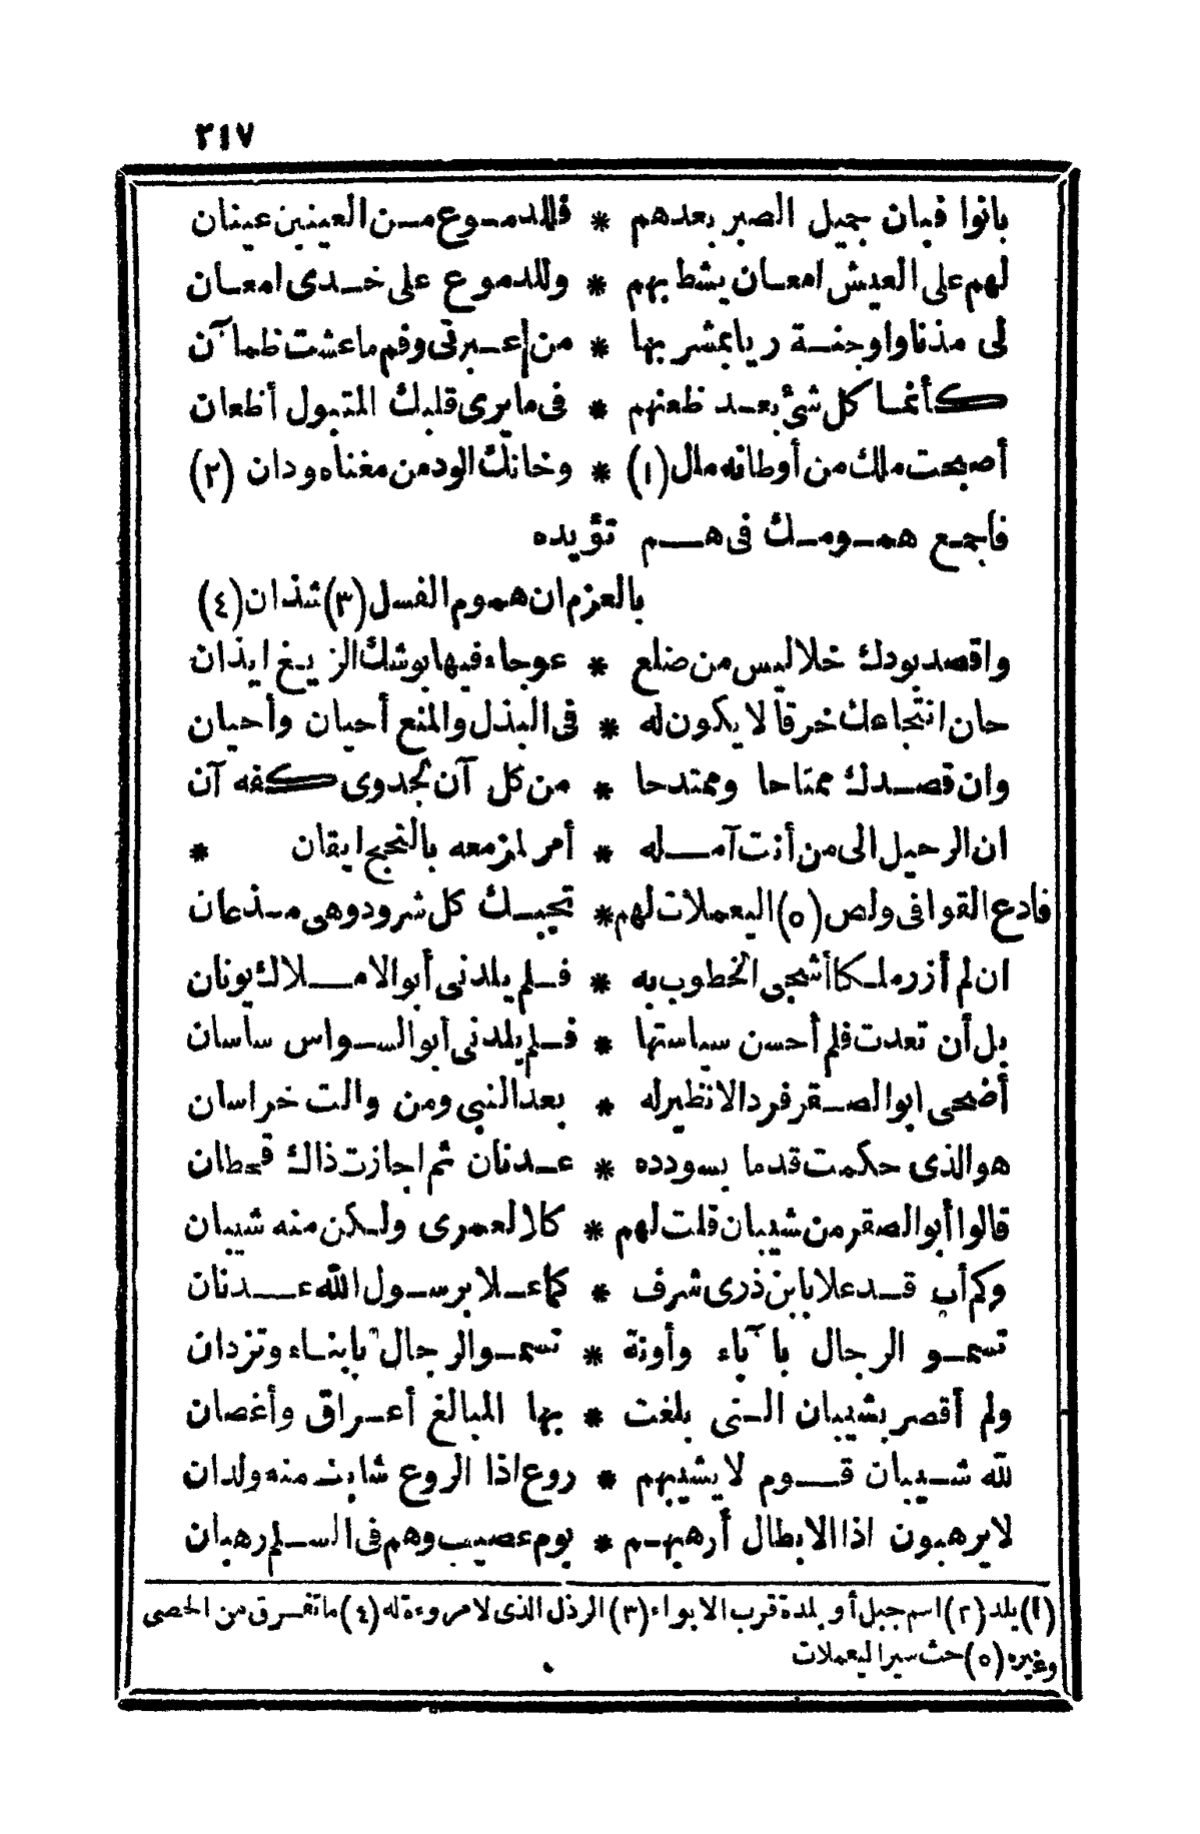 ٢١٧
بانوا فبان جميل الصبر بعدهم * فللدموع من العينين عينان
لهم على العيش امعان يشط بهم * وللدموع على خدى امعان
لى مذناوا وجنة ريا بمشربها * من عبرتى وفم ما عشت ظمآن
كأنما كل شئ بعد ظعنهم * فى ما يرى قلبك المتبول أظعان
أصبحت ملك من أوطانه ملل (١) * وخانك الود من مغناه ودان (٢)
فاجمع همومك فى هم تؤيده
بالعزم ان هموم الفسل (٣) شذان (٤)
واقصد بودك خلا ليس من ضلع * عوجاء فيها بوشك الزيغ ايذان
حان انتجاعك خرقا لا يكون له * فى البذل والمنع أحيان وأحيان
وان قصدك ممتاحا وممتدحا * من كل آن لجدوى كفه آن
ان الرحيل الى من أنت آمله * أمر لمزمعه بالنجح ايقان *
فادع القوافى ولص (٥) اليعملات لهم * تجيبك كل شرود وهى مذعان
ان لم أزر ملكا أشجى الخطوب به * فلم يلدنى أبو الاملاك يونان
بل أن تعدت فلم أحسن سياستها * فلم يلدنى أبو السواس ساسان
أضحى ابو الصقر فردا لا نظير له * بعد النبى ومن والت خراسان
هو الذى حكمت قدما بسودده * عدنان ثم اجازت ذاك قحطان
قالوا أبو الصقر من شيبان قلت لهم * كلا لعمرى ولكن منه شيبان
وكم أب قد علا بابن ذرى شرف * كما علا برسول الله عدنان
تسمو الرجال بآباء وأونة * تسمو الرجال بابناء وتزدان
ولم أقصر بشيبان التى بلغت * بها المبالغ أعراق وأغصان
لله شيبان قوم لا يشيبهم * روع اذا الروع شابت منه ولدان
لا يرهبون اذا الابطال أرهبهم * يوم عصيب وهم فى السلم رهبان
(١) بلد (٢) اسم جبل أو بلدة قرب الابواء (٣) الرذل الذى لا مروءة له (٤) ما تفرق من الحصى
وغيره (٥) حث سير اليعملات